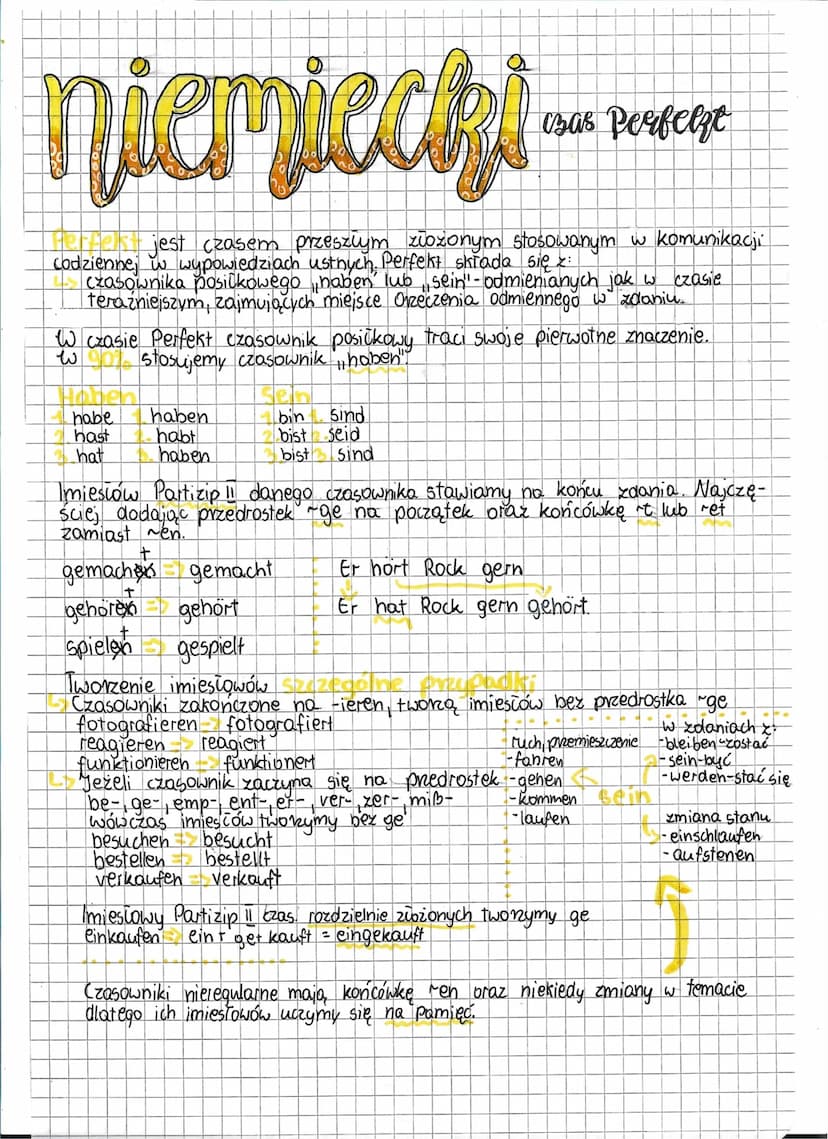 niemiecki czas Perfekt
Perfekt jest czasem przeszłym złożonym stosowanym w komunikacji
codziennej w wypowiedziach ustnych, Perfekt składa się z:
↳ czasownika posiłkowego „haben" lub „sein"- odmienianych jak w czasie
teraźniejszym, zajmujących miejsce Orzeczenia odmiennego w zdaniu.
W czasie Perfekt czasownik posiłkowy traci swoje pierwotne znaczenie.
W 90% stosujemy czasownik „haben".
Haben
1. habe 1. haben
2. hast 2. habt
3. hat 3. haben
Sein
1. bin 1. sind
2. bist 2. seid
3. bist 3. sind
Imiesłów Partizip II danego czasownika stawiamy na końcu zdania. Najczę-
ściej dodając przedrostek ~ge na początek oraz końcówkę ~t lub ~et
zamiast ~en.
t
gemachen => gemacht
t
gehören => gehört
t
spielen => gespielt
Er hört Rock gern
Er hat Rock gern gehört.
Tworzenie imiesłowów szczególne przypadki
↳ Czasowniki zakończone na -ieren, tworzą imiesłów bez przedrostka ~ge
fotografieren => fotografiert
reagieren => reagiert
funktionieren => funktionert
↳ Jeżeli czasownik zaczyna się na przedrostek
be-, ge-, emp-, ent-, er-, ver-, zer-, miß-
wówczas imiesłów tworzymy bez ge
besuchen => besucht
bestellen => bestellt
verkaufen => verkauft
ruch, przemieszczenie
-fahren
-gehen
-kommen
-laufen
sein
w zdaniach z:
-bleiben-zostać
-sein-być
-werden-stać się
zmiana stanu
-einschlaufen
-aufstenen
Imiesłowy Partizip II czas. rozdzielnie złożonych tworzymy ge
einkaufen => ein + ge+ kauft = eingekauft
Czasowniki nieregularne mają końcówkę ~en oraz niekiedy zmiany w temacie
dlatego ich imiesłowów uczymy się na pamięć.